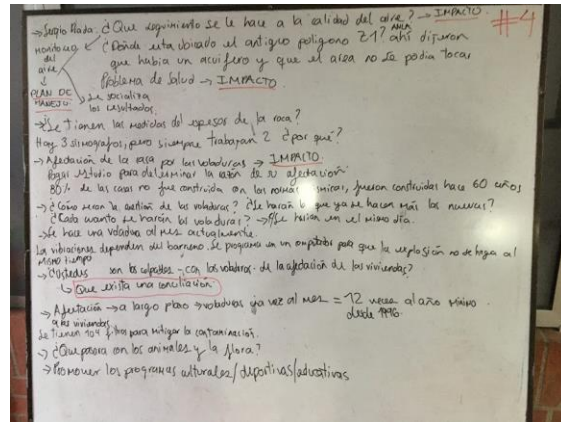 #4
→ Sergio Prada. ¿Que seguimiento se le hace a la calidad del aire? → IMPACTO.
Monitoreo del aire ↓ PLAN DE MANEJO.
¿Donde esta ubicado el antiguo poligono Z1? ANLA ahi dijeron
que habia un acuifero y que el area no se podia tocar
Problema de salud → IMPACTO
Se socializa los resultados.
→ ¿Se tienen las medidas del espesor de la roca?
Hay 3 sismografos, pero siempre trabajan 2 ¿por qué?
→ Afectación de la casa por las voladuras → IMPACTO.
Pagar estudio para determinar la razón de su afectación.
80% de las casas no fue construida con las normas sismicas, fueron construidas hace 60 años
→ ¿Cómo seran la cuestion de las voladuras? ¿Se harán lo que ya se hacen más las nuevas?
¿Cada cuanto se harán las voladuras? → Se harian en el mismo día.
→ Se hace una voladura al mes actualmente.
La vibraciones dependen del barreno. Se programa en un para que la explosión no se haga al
mismo tiempo
→ ¿Ustedes son los culpables con las voladuras de la afectación de las viviendas?
↳ Que exista una conciliación
→ Afectación → a largo plazo → voladuras una vez al mes = 12 veces al año mínimo
a las viviendas. desde 1996.
Se tienen 104 filtros para mitigar la contaminación.
→ ¿Que pasaria con los animales y la flora?
→ Promover los programas culturales/deportivas/educativas